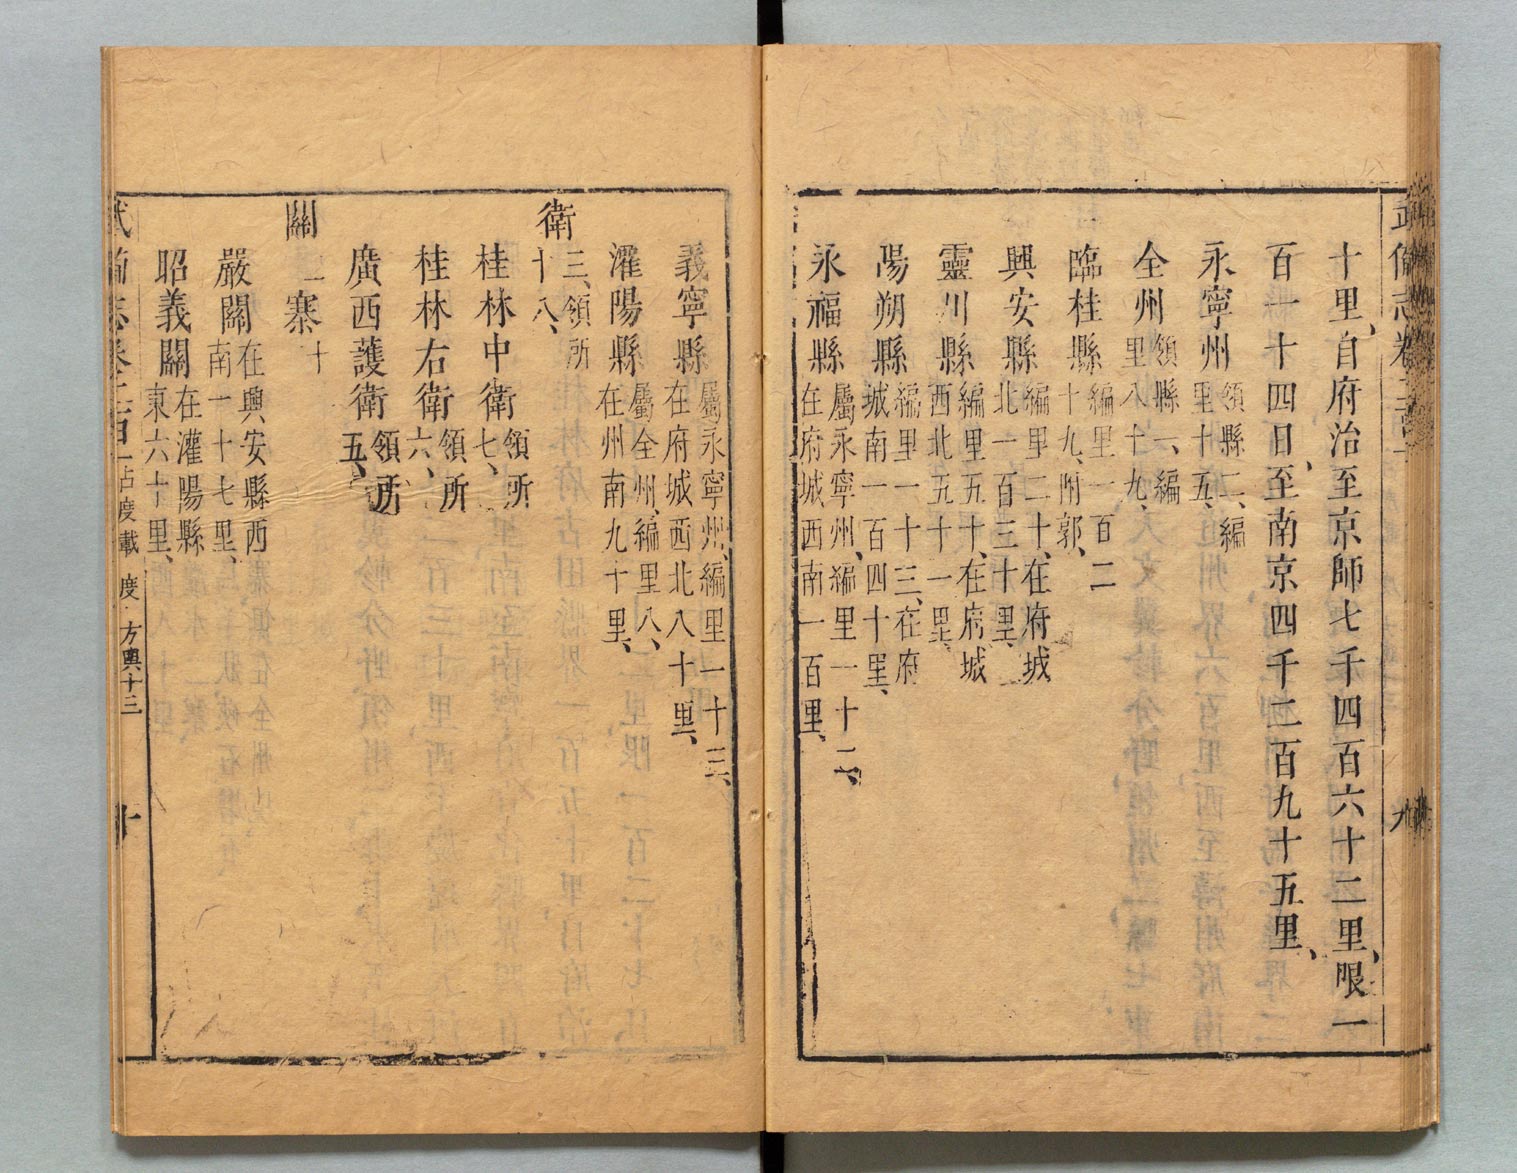 武備志卷
九
十里、自府治至京師七千四百六十二里、限一
百一十四日、至南京四千二百九十五里、
永寧州領縣二、編
里十五、
全州領縣一、編
里八十九、
臨桂縣編里一百二
十九、附郭、
興安縣編里二十、在府城
北一百三十里、
靈川縣編里五十、在府城
西北五十一里、
陽朔縣編里一十三、在府
城南一百四十里、
永福縣屬永寧州、編里一十二、
在府城西南一百里、
義寧縣屬永寧州、編里一十三、
在府城西北八十里、
灌陽縣屬全州、編里八、
在州南九十里、
衛三、領所
十八、
桂林中衛領所
七、
桂林右衛領所
六、
廣西護衛領所
五、
關一寨十
嚴關在興安縣西
南一十七里、
昭義關在灌陽縣
東六十里、
武備志卷二百一 占度載 度・方輿十三
十